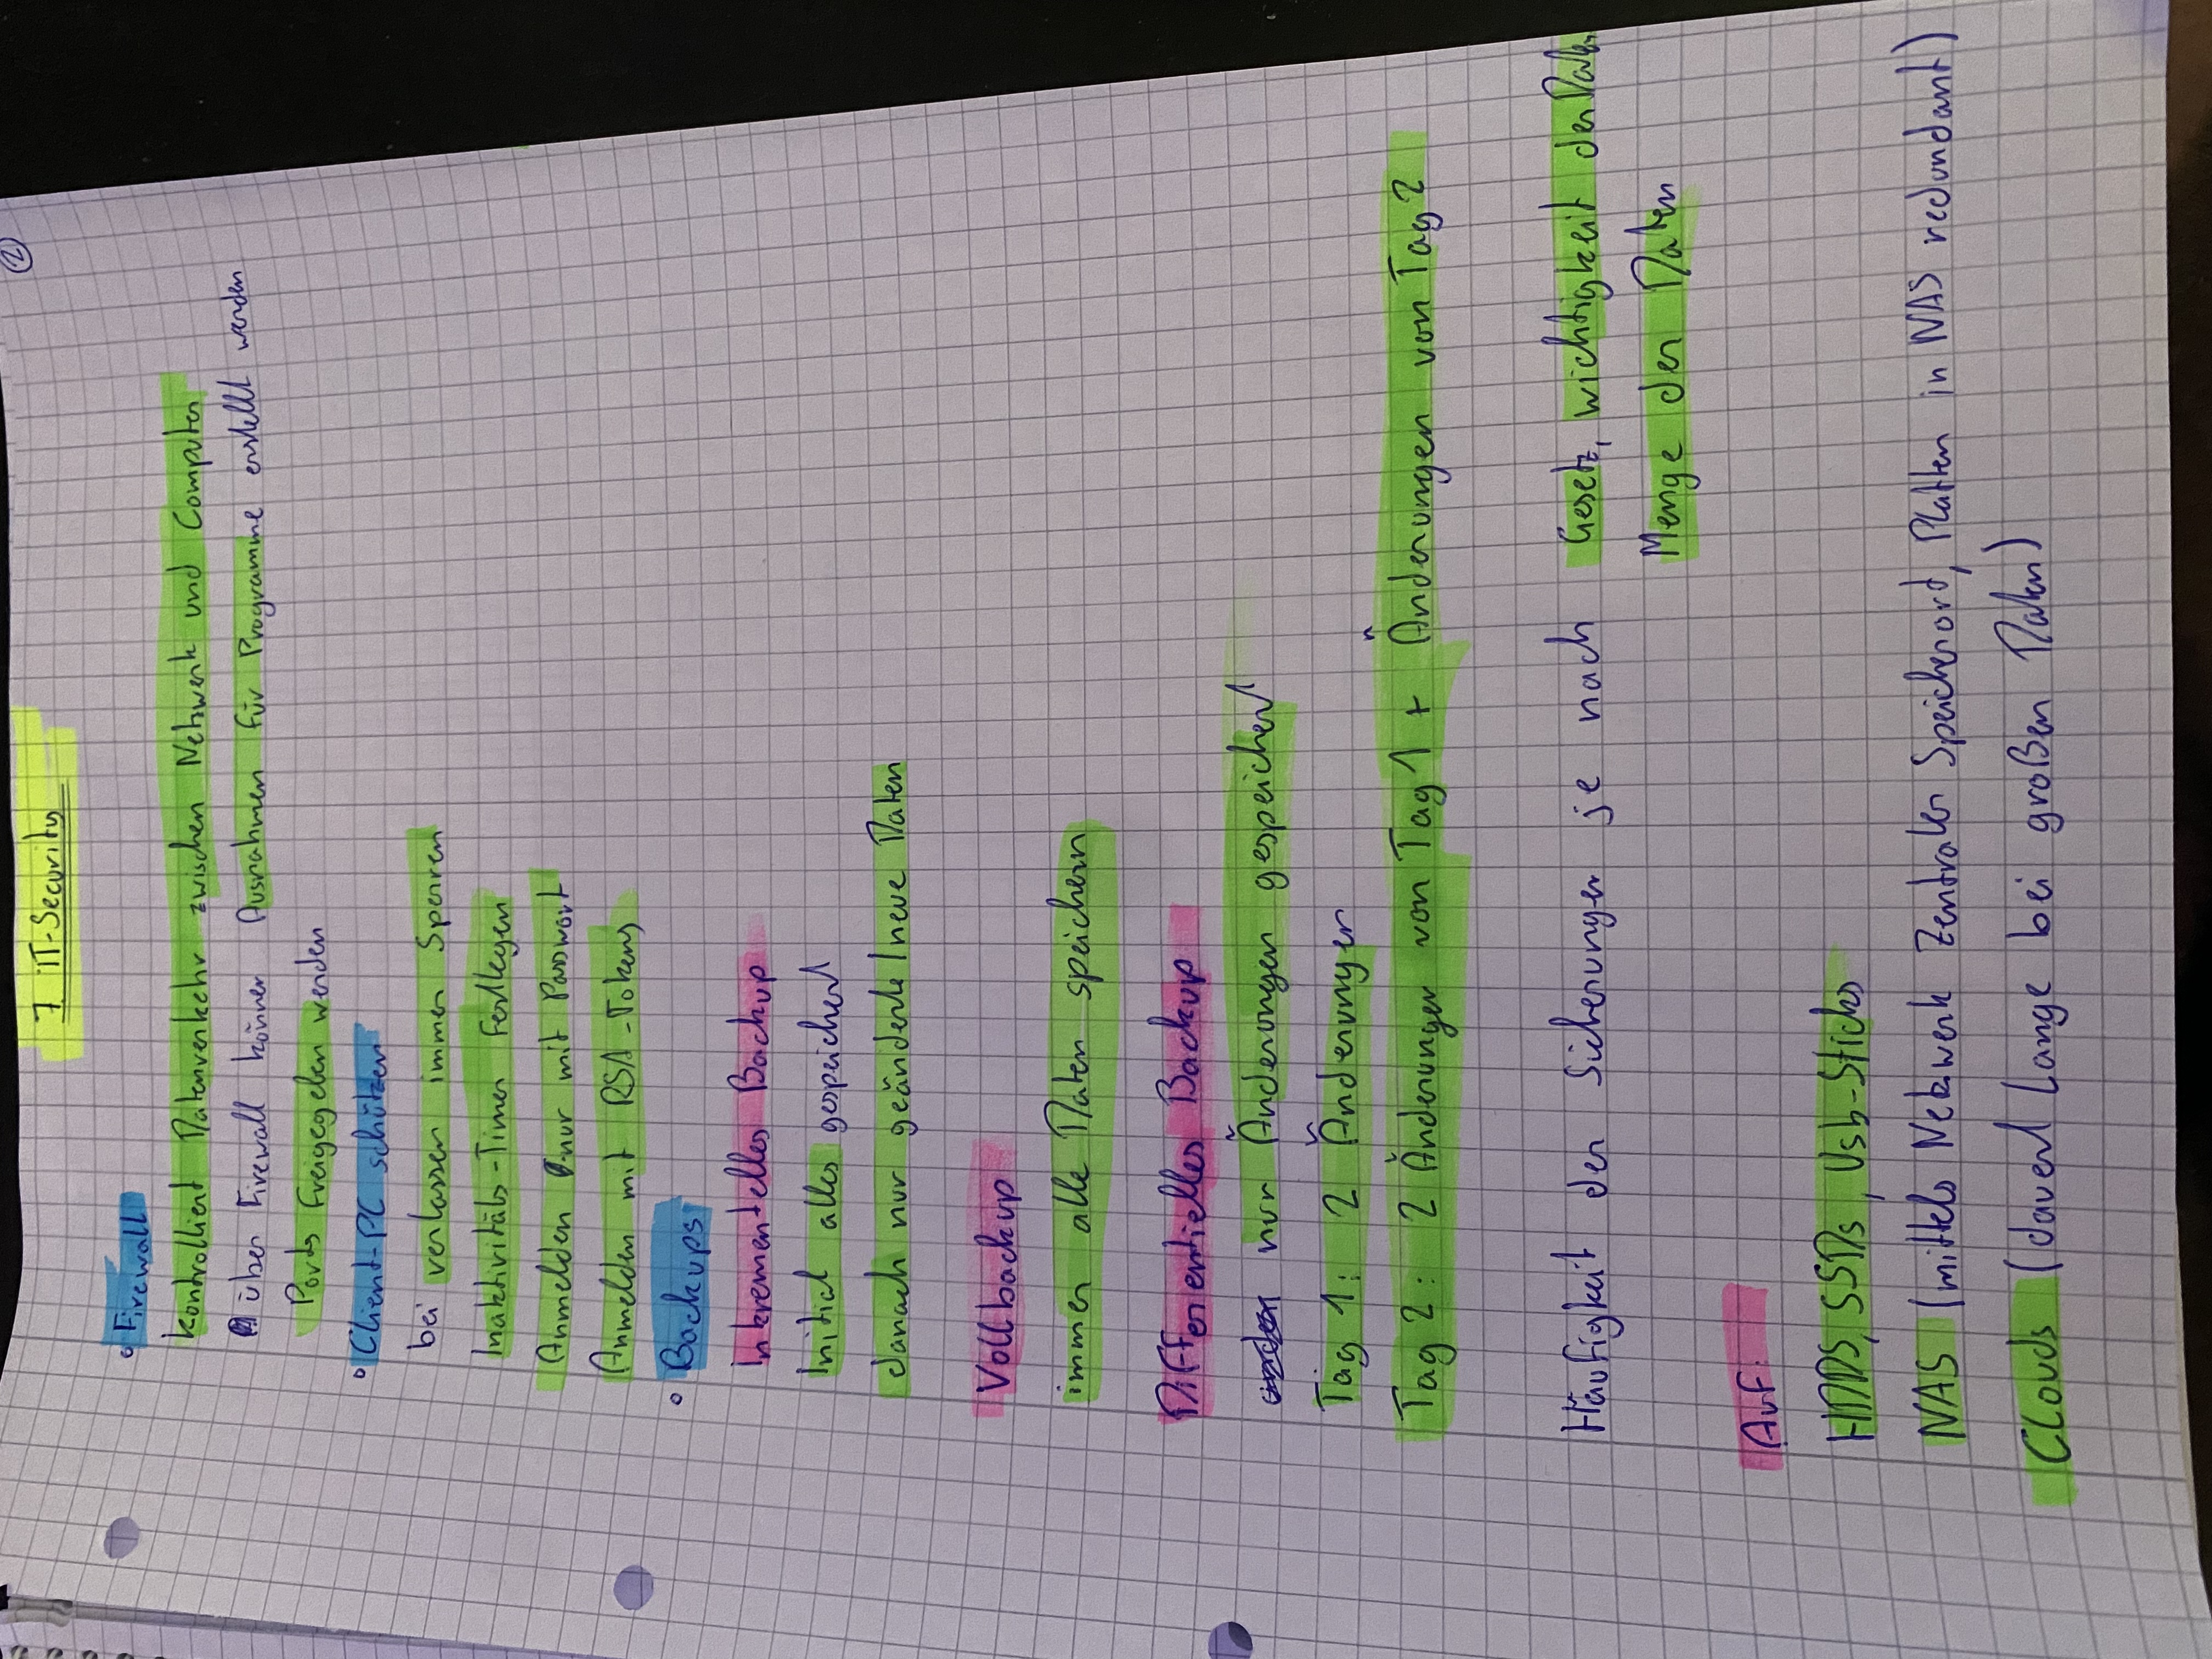 ②
7. IT-Security
° Firewall
kontrolliert Datenverkehr zwischen Netzwerk und Computer
über Firewall können Ausnahmen für Programme erstellt werden
Ports freigegeben werden
° Client-PC schützen
bei verlassen immer Sperren
Inaktivitäts-Timer festlegen
Anmelden nur mit Passwort
Anmelden mit RSA-Tokens
° Backups
Inkrementelles Backup
Initial alles gespeichert
danach nur geänderte/neue Daten
Vollbackup
immer alle Daten speichern
Differentielles Backup
nur Änderungen gespeichert
Tag 1: 2 Änderungen
Tag 2: 2 Änderungen von Tag 1 + Änderungen von Tag 2
Häufigkeit der Sicherungen je nach Gesetz, wichtigkeit der Daten
Menge der Daten
Auf:
HDDS, SSDs, Usb-Sticks
NAS (mittels Netzwerk Zentraler Speicherort, Platten in NAS redundant)
Clouds (dauert Lange bei großen Daten)